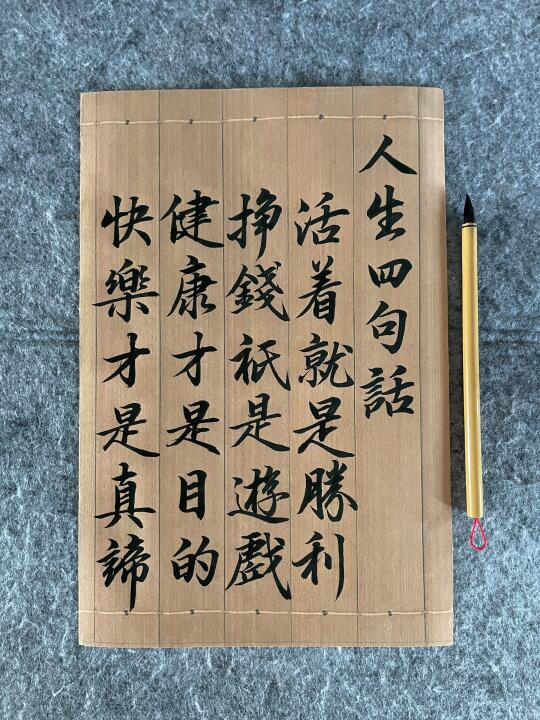 人生四句話
活着就是勝利
挣錢祇是遊戲
健康才是目的
快樂才是真諦